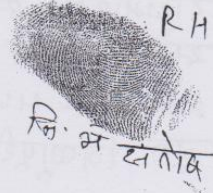 RH
नि. अं संतोष